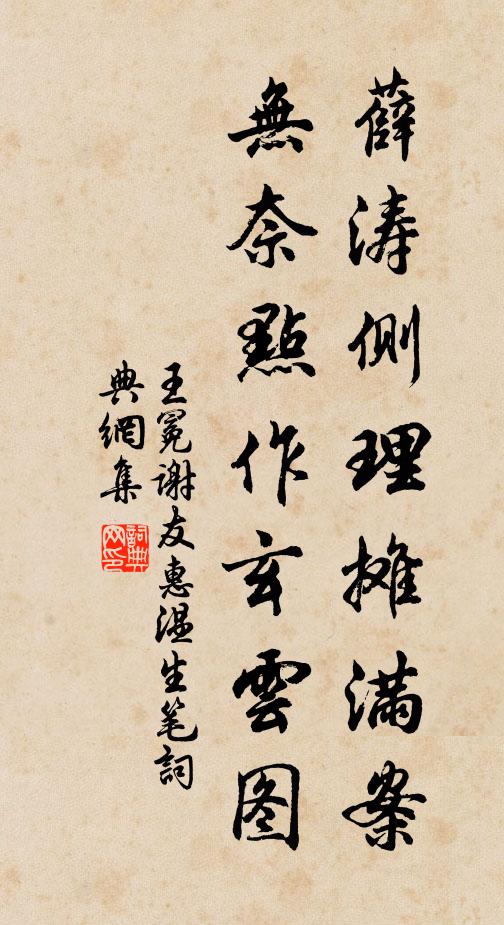 薛涛側理攤满案
無奈點作玄雲图
王冕謝友惠温生笔詞
典網集
詞典網印